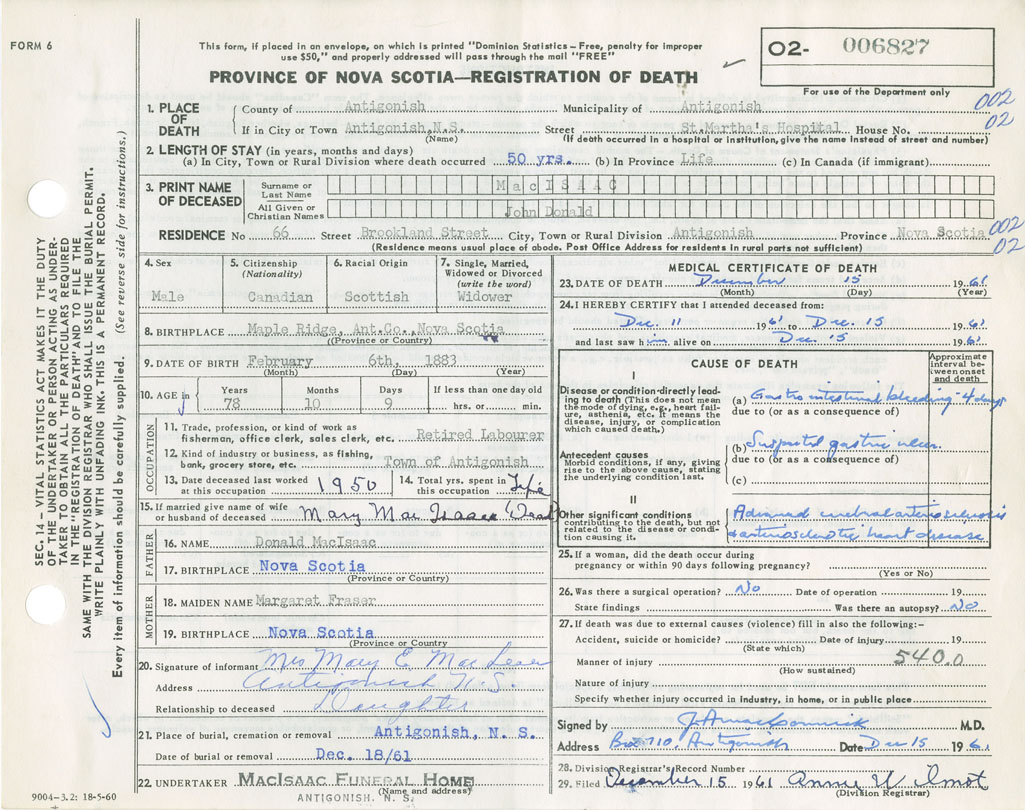 FORM 6
This form, if placed in an envelope, on which is printed "Dominion Statistics – Free, penalty for improper
use $50," and properly addressed will pass through the mail "FREE"
O2- 006827
For use of the Department only
PROVINCE OF NOVA SCOTIA—REGISTRATION OF DEATH
002
02
1. PLACE OF DEATH
County of Antigonish Municipality of Antigonish
If in City or Town Antigonish, N.S. Street St. Martha's Hospital House No.
(Name) (If death occurred in a hospital or institution, give the name instead of street and number)
2. LENGTH OF STAY (in years, months and days)
(a) In City, Town or Rural Division where death occurred 50 yrs. (b) In Province Life (c) In Canada (if immigrant)
3. PRINT NAME OF DECEASED
Surname or Last Name MacISAAC
All Given or Christian Names John Donald
RESIDENCE No 66 Street Brookland Street City, Town or Rural Division Antigonish Province Nova Scotia
002
02
(Residence means usual place of abode. Post Office Address for residents in rural parts not sufficient)
SEC. 14 – VITAL STATISTICS ACT MAKES IT THE DUTY
OF THE UNDERTAKER OR PERSON ACTING AS UNDER-
TAKER TO OBTAIN ALL THE PARTICULARS REQUIRED
IN THE "REGISTRATION OF DEATH" AND TO FILE THE
SAME WITH THE DIVISION REGISTRAR WHO SHALL ISSUE THE BURIAL PERMIT.
WRITE PLAINLY WITH UNFADING INK. THIS IS A PERMANENT RECORD.
Every item of information should be carefully supplied. (See reverse side for instructions.)
4. Sex
Male
5. Citizenship
(Nationality)
Canadian
6. Racial Origin
Scottish
7. Single, Married,
Widowed or Divorced
(write the word)
Widower
8. BIRTHPLACE Maple Ridge, Ant.Co., Nova Scotia
((Province or Country)
9. DATE OF BIRTH February 6th, 1883
(Month) (Day) (Year)
10. AGE in
Years 78
Months 10
Days 9
If less than one day old
hrs. or min.
OCCUPATION
11. Trade, profession, or kind of work as
fisherman, office clerk, sales clerk, etc. Retired Labourer
12. Kind of industry or business, as fishing,
bank, grocery store, etc. Town of Antigonish
13. Date deceased last worked
at this occupation 1950
14. Total yrs. spent in
this occupation Life
15. If married give name of wife
or husband of deceased Mary MacIsaac (Dead)
FATHER
16. NAME Donald MacIsaac
17. BIRTHPLACE Nova Scotia
(Province or Country)
MOTHER
18. MAIDEN NAME Margaret Fraser
19. BIRTHPLACE Nova Scotia
(Province or Country
20. Signature of informant Mrs Mary E.
Address Antigonish N.S.
Relationship to deceased Daughter
21. Place of burial, cremation or removal Antigonish, N. S.
Date of burial or removal Dec. 18/61
22. UNDERTAKER MACISAAC FUNERAL HOME
(Name and address)
ANTIGONISH, N. S.
9004-3.2: 18-5-60
MEDICAL CERTIFICATE OF DEATH
23. DATE OF DEATH December 15 1961
(Month) (Day) (Year)
24. I HEREBY CERTIFY that I attended deceased from:
Dec. 11 1961 to Dec. 15 1961
and last saw him alive on Dec. 15 1961
CAUSE OF DEATH
Approximate
interval be-
tween onset
and death
I
Disease or condition directly lead-
ing to death (This does not mean
the mode of dying, e.g., heart fail-
ure, asthenia, etc. It means the
disease, injury, or complication
which caused death.)
(a) Gastrointestinal bleeding - 4 days
due to (or as a consequence of)
Antecedent causes
Morbid conditions, if any, giving
rise to the above cause, stating
the underlying condition last.
(b) Suspected gastric ulcer.
due to (or as a consequence of)
(c)
II
Other significant conditions
contributing to the death, but not
related to the disease or condi-
tion causing it.
Advanced cerebral arteriosclerosis
& arteriosclerotic heart disease
25. If a woman, did the death occur during
pregnancy or within 90 days following pregnancy?
(Yes or No)
26. Was there a surgical operation? No Date of operation 19
State findings Was there an autopsy? No
27. If death was due to external causes (violence) fill in also the following:–
Accident, suicide or homicide? Date of injury 19
(State which)
Manner of injury 540.0
(How sustained)
Nature of injury
Specify whether injury occurred in industry, in home, or in public place
Signed by J. A. MacCormick M.D.
Address Box 710, Antigonish Date Dec 15 1961
28. Division Registrar's Record Number
29. Filed December 15 1961 Annie
(Division Registrar)